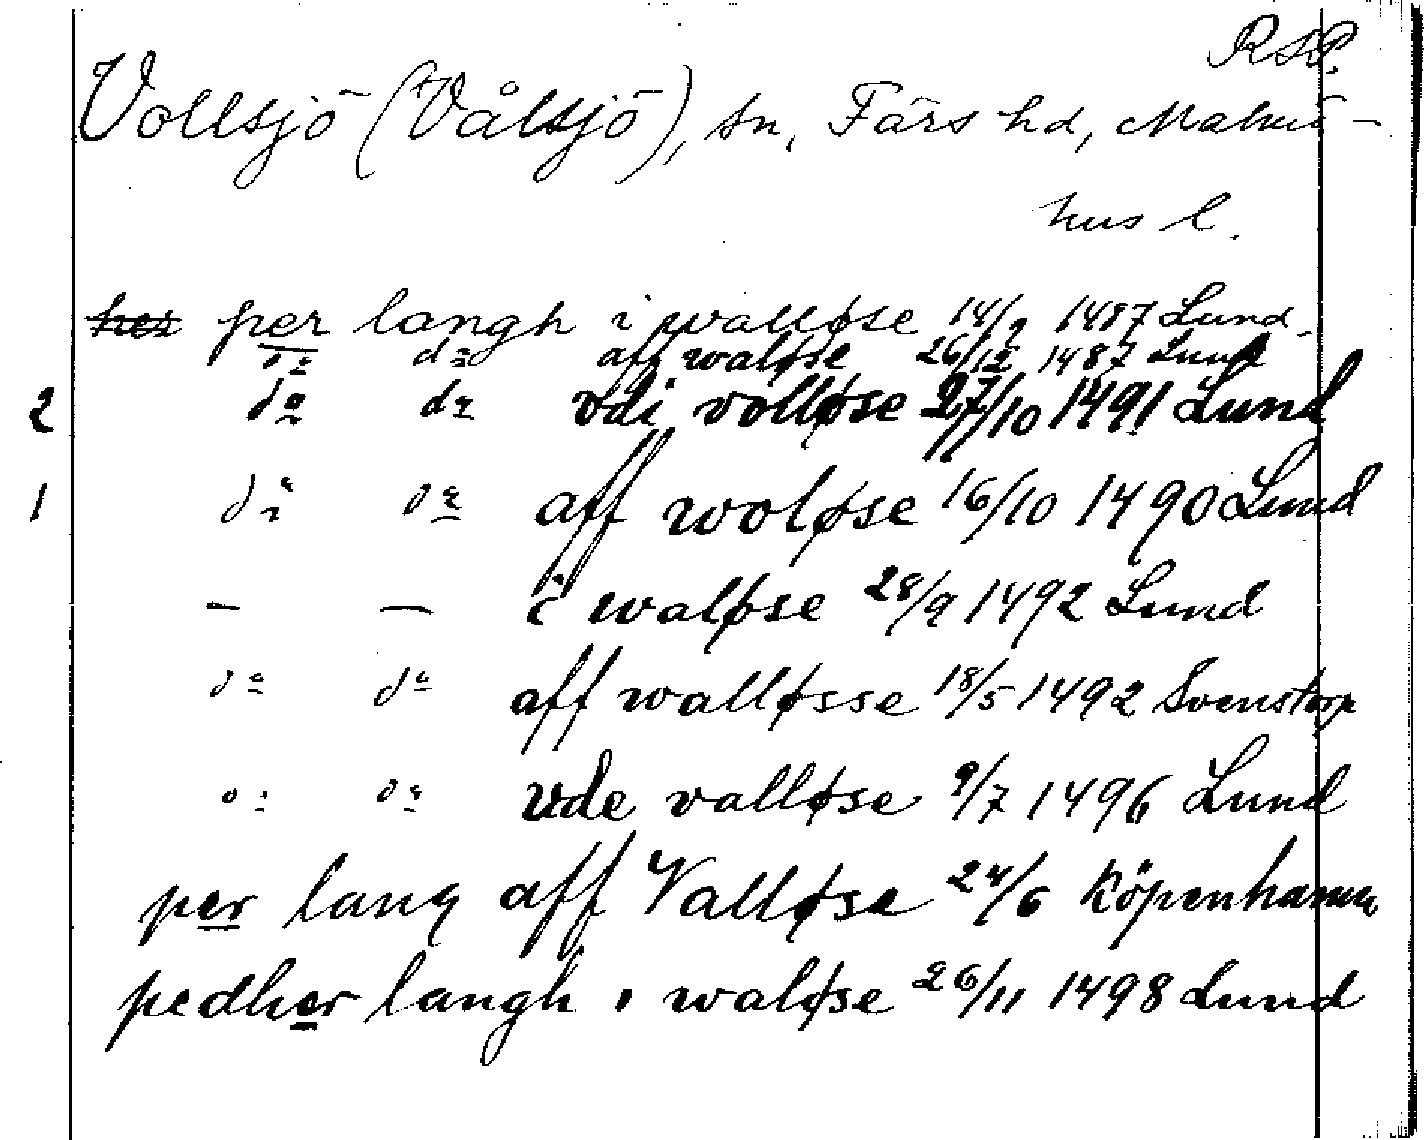 RSP.
Vollsjö (Vålsjö), sn, Färs hd, Malmö-
hus l.
her per langh i walløse 14/9 1487 Lund.
do do aff waløse 26/12 1487 Lund
2 do do vdi volløse 27/10 1491 Lund
1 do do aff woløse 16/10 1490 Lund
— — i waløse 28/9 1492 Lund
do do aff walløsse 18/5 1492 Svenstorp
do do vde valløse 9/7 1496 Lund
per lang aff Valløse 24/6 Köpenhamn
pedher langh i waløse 26/11 1498 Lund